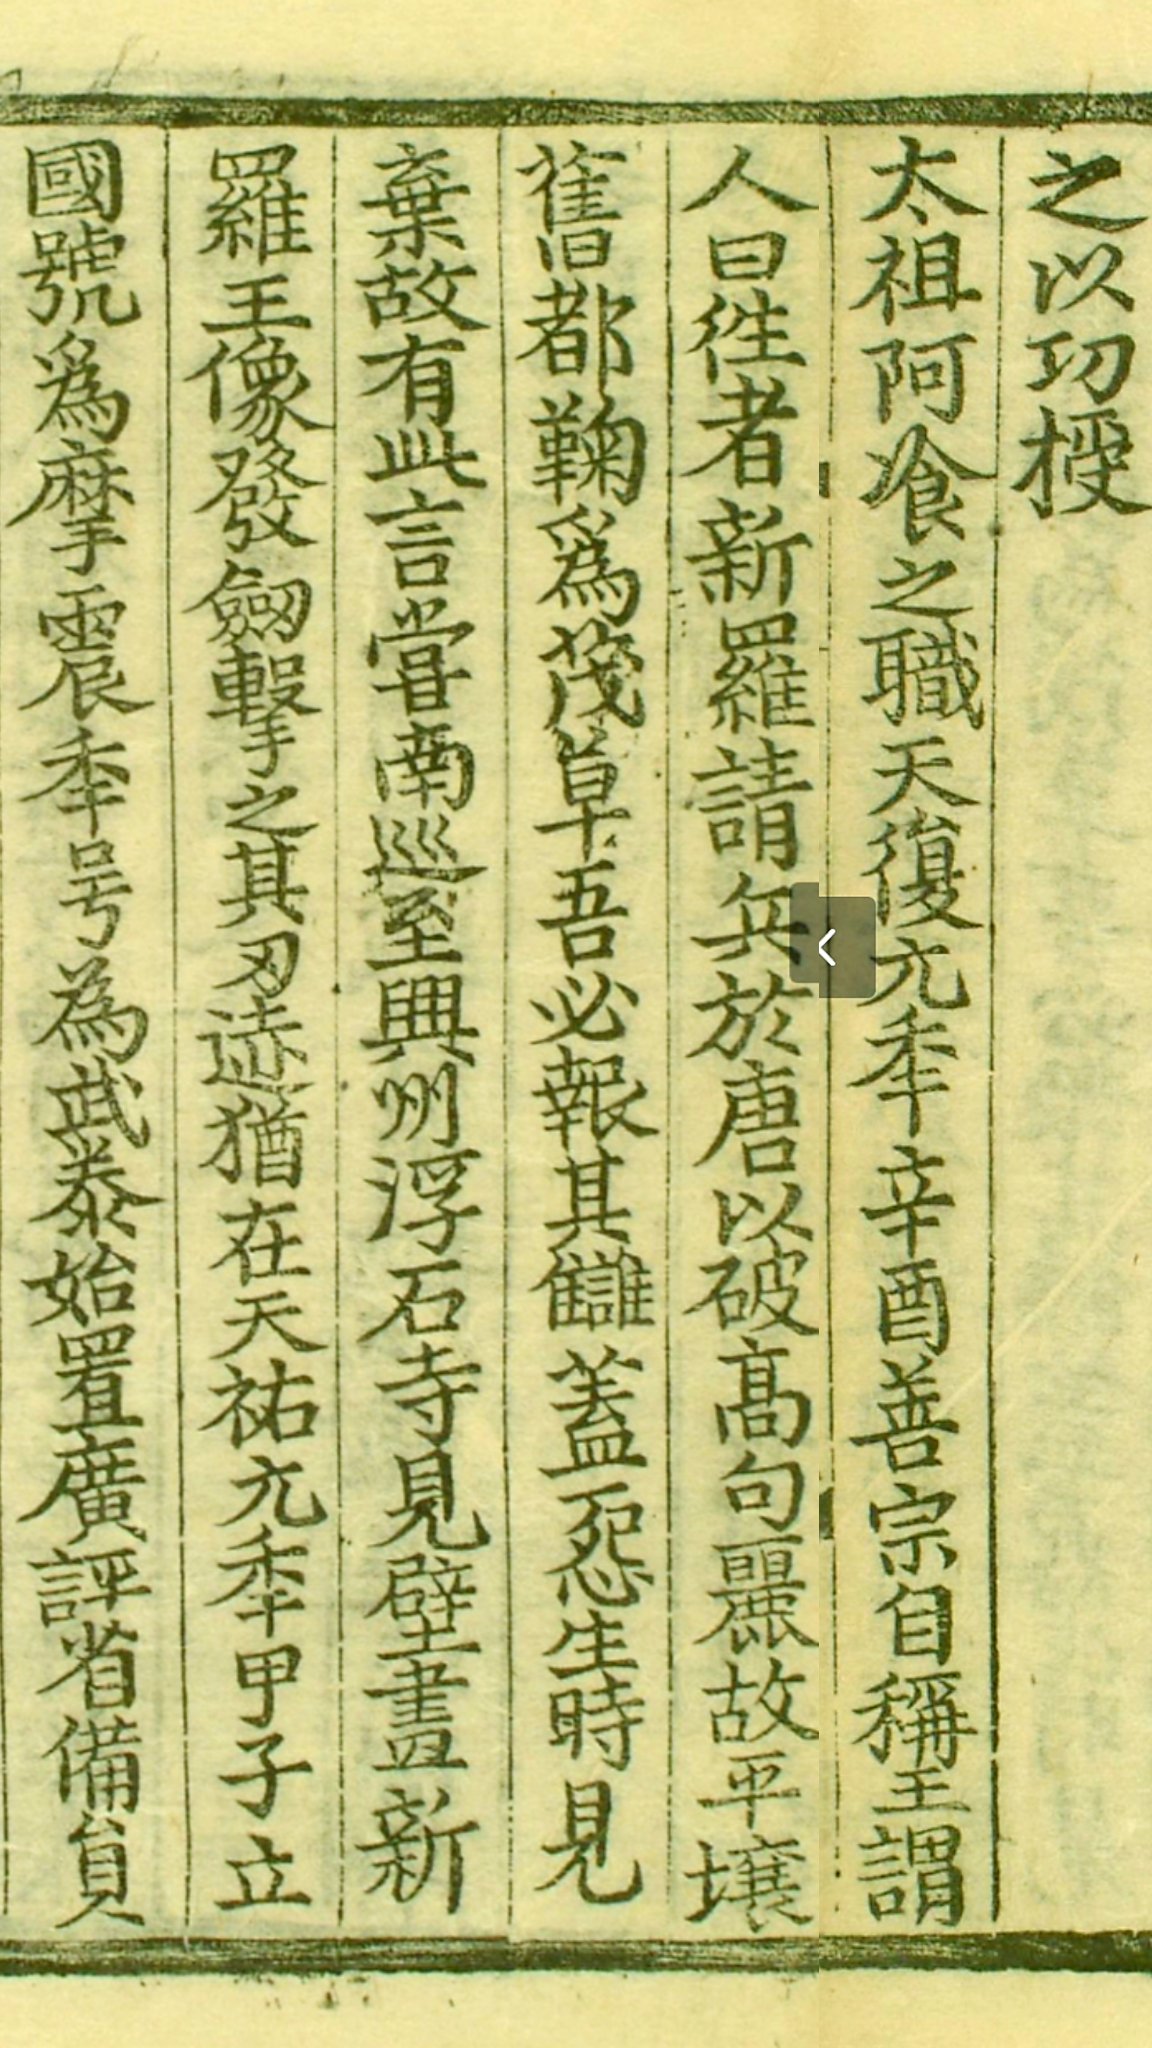 之以功授
太祖阿飡之職天復元秊辛酉善宗自稱王謂
人曰徃者新羅請兵於唐以破高句麗故平壤
舊都鞠爲茂草吾必報其讎蓋怨生時見
棄故有此言嘗南巡至興州浮石寺見壁畫新
羅王像發劒擊之其刃迹猶在天祐元秊甲子立
國號爲摩震秊号為武泰始置廣評省備貟